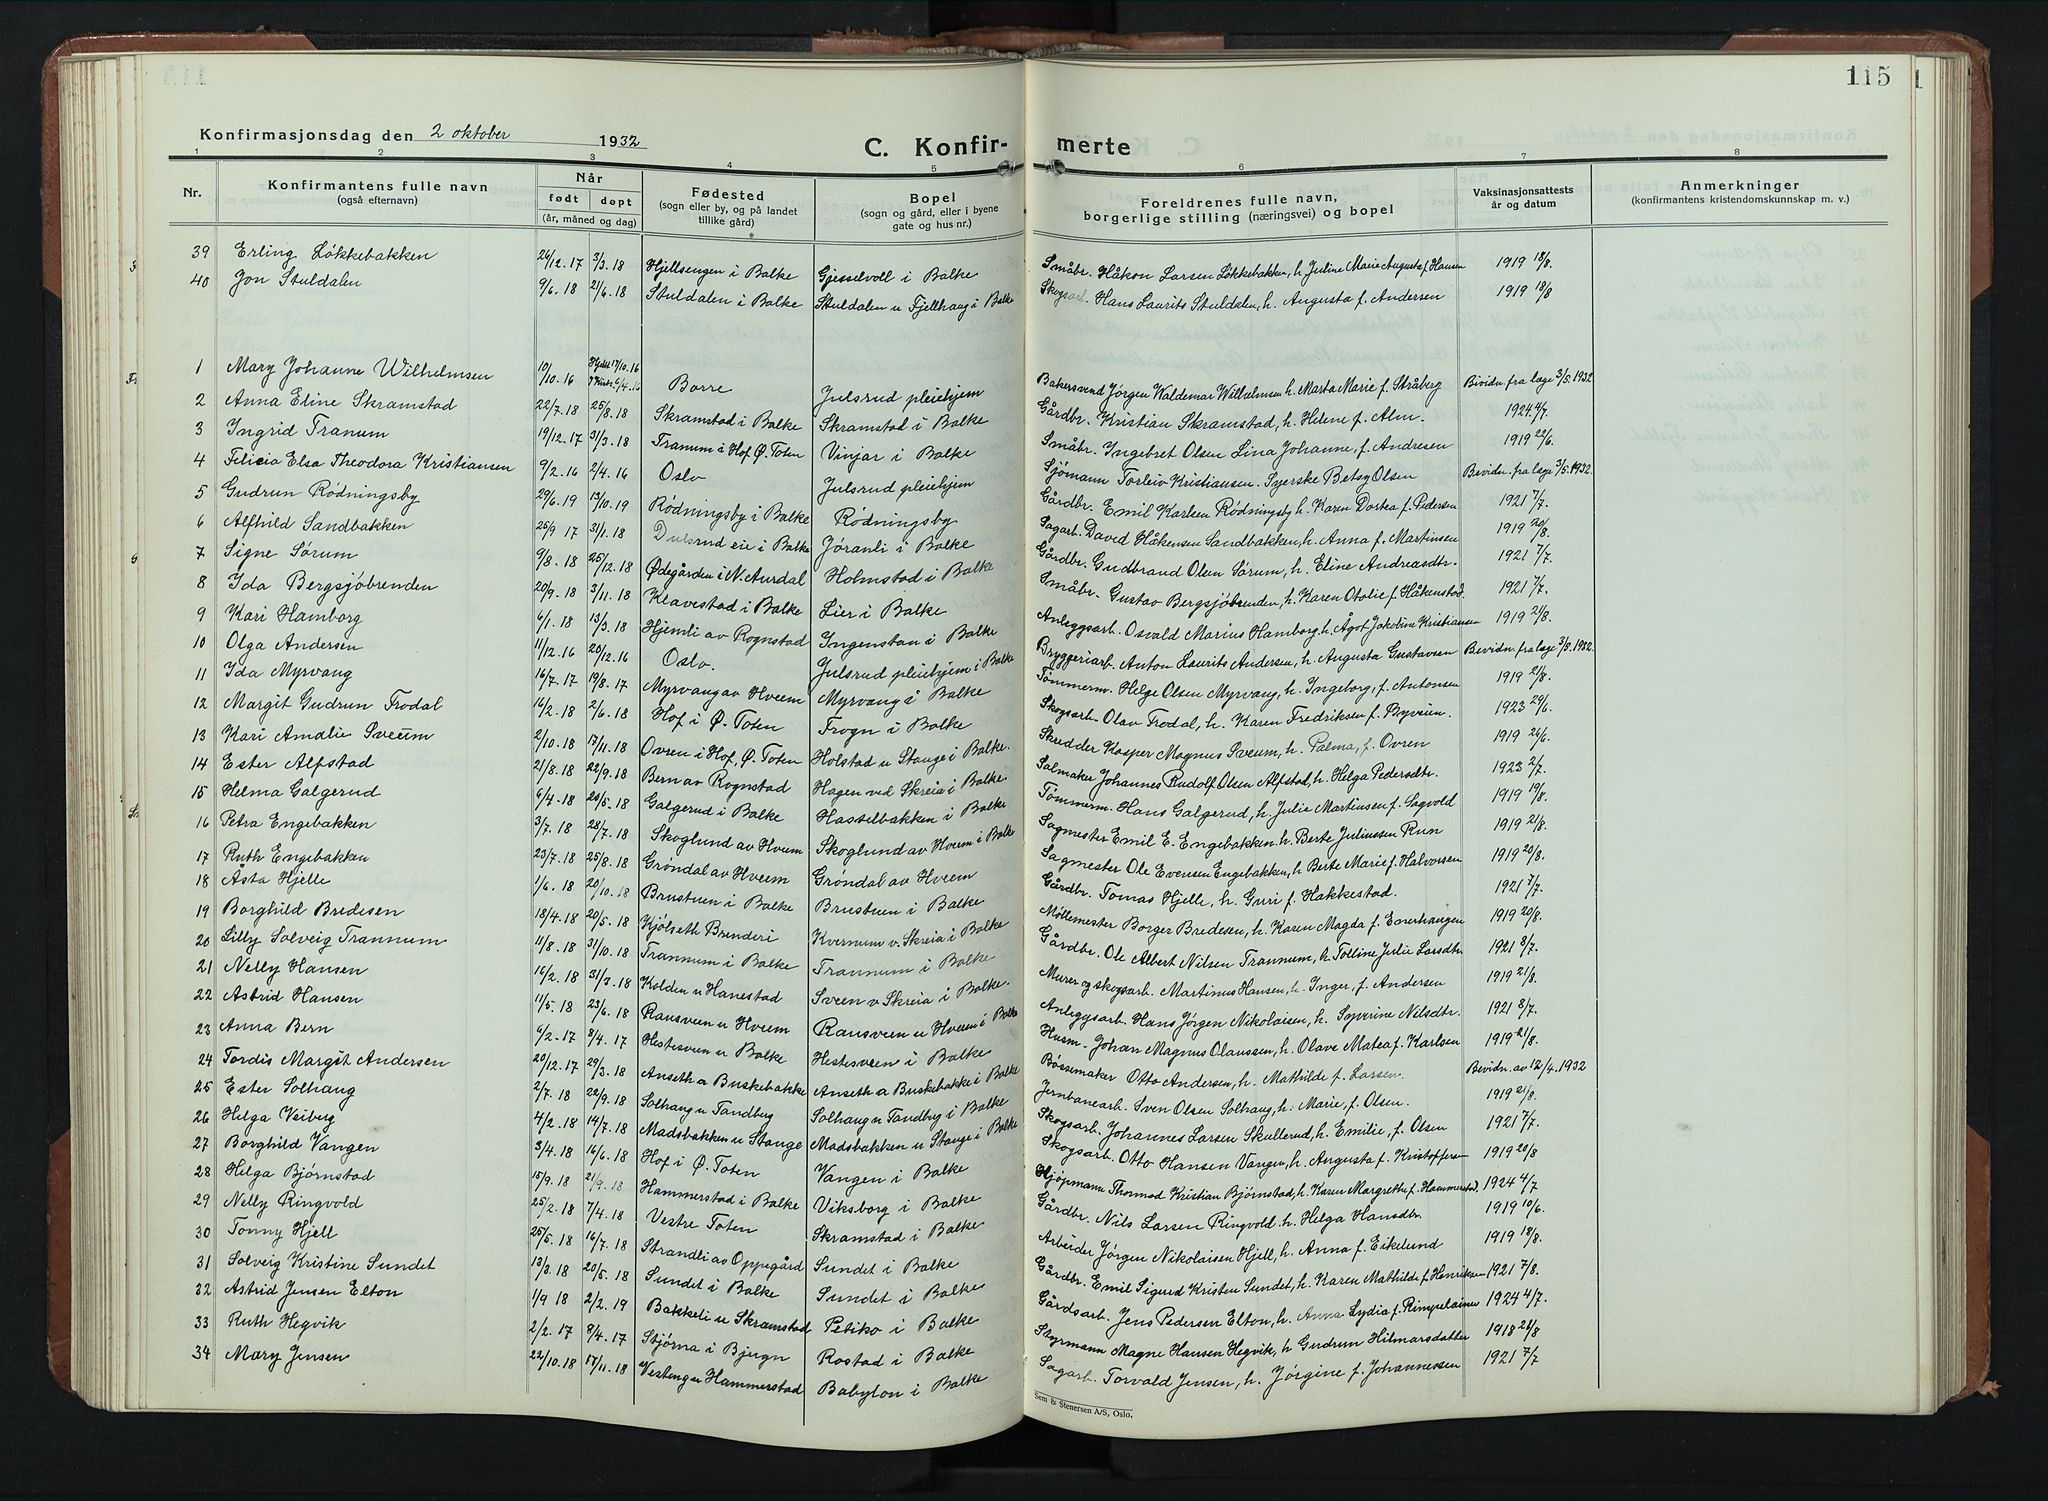 115
Konfirmasjonsdag den 2 oktober 1932
C. Konfir- merte
1 2 3 4 5 6 7 8
Nr. Konfirmantens fulle navn (også efternavn) Når født døpt (år, måned og dag) Fødested (sogn eller by, og på landet tillike gård) Bopel (sogn og gård, eller i byene gate og hus nr.) Foreldrenes fulle navn, borgerlige stilling (næringsvei) og bopel Vaksinasjonsattests år og datum Anmerkninger (konfirmantens kristendomskunnskap m. v.)
39 Erling Løkkebakken 26/12.17 3/3.18 Hjellsengen i Balke Gjesselvoll i Balke Småbr. Håkon Larsen Løkkebakken, h. Juline Marie Augusta f. Hansen 1919 18/8.
40 Jon Stuldalen 9/6.18 21/6.18 Stuldalen i Balke Stuldalen u Fjellhaug i Balke Skogsarb. Hans Laurits Stuldalen, h. Augusta f. Andersen 1919 18/8
1 Mary Johanne Wilhelmsen 10/10.16 Borre Julsrud pleiehjem Bakersvend Jørgen Waldemar Wilhelmsen h. Marta Marie f. Stråberg Bevidn. fra læge 3/5.1932.
2 Anna Eline Skramstad 22/7.18 25/8.18 Skramstad i Balke Skramstad i Balke Gårdbr. Kristian Skramstad, h. Helene f. Alm. 1924 4/7.
3 Ingrid Tranum 19/12.17 31/3.18 Tranum i Hof Ø. Toten Vinjar i Balke Småbr. Ingebret Olsen Lina Johanne, f. Andresen 1919 22/6.
4 Felicia Elsa Theodora Kristiansen 9/2.16 2/4.16 Oslo Julsrud pleiehjem Sjömann Torleiv Kristiansen. Syerske Betsy Olsen Bevidn. fra læge 3/5.1932.
5 Gudrun Rødningsby 29/6.19 13/10.19 Rødningsby i Balke Rødningsby Gårdbr. Emil Karlsen Rødningsby h. Karen Dortea f. Pedersen 1921 7/7.
6 Alfhild Sandbakken 25/9 17 31/1.18 Dulsrud eie i Balke Jøranli i Balke Sagarb. David Håkensen Sandbakken, h. Anna f. Martinsen 1919 20/8.
7 Signe Sørum 9/8.18 25/12.18 Ødegården i N. Aurdal Holmstad i Balke Gårdbr. Gudbrand Olsen Sørum, h. Eline Andreasdtr. 1921 7/7.
8 Ida Bergsjøbrenden 20/9.18 3/11.18 Klavestad i Balke Lier i Balke Småbr. Gustav Bergsjøbrenden, h. Karen Otolie f. Håkenstad. 1921 7/7.
9 Kari Hamborg 6/1.18 13/3.18 Hjemli av Rognstad Ingenstan i Balke Anleggsarb. Osvald Marius Hamborg h. Ågot Jakobine Kristiansen 1919 21/8.
10 Olga Andersen 11/12.16 20/12.16 Oslo. Julsrud pleiehjem i Balke Bryggeriarb. Anton Laurits Andersen, h. Augusta Gustavsen Bevidn. fra læge 3/5.1932.
11 Ida Myrvang 16/7.17 19/8.17 Myrvang av Hveem Myrvang i Balke Tømmerm. Helge Olsen Myrvang, h. Ingeborg, f. Antonsen 1919 21/8.
12 Margit Gudrun Frodal 16/2.18 2/6.18 Hof i Ø. Toten Frogn i Balke Skogsarb. Olav Frodal, h. Karen Fredriksen f. Byveien. 1923 29/6.
13 Kari Amalie Sveum 2/10.18 17/11.18 Ovren i Hof, Ø. Toten Holstad u Stange i Balke. Skredder Kasper Magnus Sveum, h. Palma, f. Ovren 1919 26/6.
14 Ester Alfstad 21/8.18 22/9.18 Bern av Rognstad Hagen ved Skreia i Balke Salmaker Johannes Rudolf Olsen Alfstad, h. Helga Pedersdtr. 1923 2/7.
15 Helma Galgerud 6/4.18 20/5.18 Galgerud i Balke Hasselbakken i Balke Tømmerm. Hans Galgerud, h. Julie Martinsen f. Sagvold 1919 19/8.
16 Petra Engebakken 3/7.18 28/7.18 Skoglund av Hveem Skoglund av Hveem i Balke Sagmester Emil E. Engebakken. h. Berte Juliussen Run 1919 21/8.
17 Ruth Engebakken 23/7.18 25/8.18 Grøndal av Hveem Grøndal av Hveem Sagmester Ole Evensen Engebakken, h. Berte Marie f. Halvorsen 1919 20/8.
18 Åsta Hjelle 1/6.18 20/10.18 Brustuen i Balke Brustuen i Balke Gårdbr. Tomas Hjelle, h. Guri f. Hakkestad. 1921 7/7.
19 Borghild Bredesen 18/4.18 20/5.18 Kjølseth Brenderi Kvernum v. Skreia i Balke Møllemester Borger Bredesen, h. Karen Magda f. Enerhaugen 1919 20/8.
20 Lilly Solveig Trannum 11/8.18 31/10.18 Trannum i Balke Trannum i Balke Gårdbr. Ole Albert Nilsen Trannum, h. Tolline Julie Larsdtr 1921 8/7.
21 Nelly Hansen 16/2.18 31/3.18 Kolden u Hanestad Sveen v Skreia i Balke. Murer og skogsarb. Martinus Hansen, h. Inger, f. Andersen 1919 21/8.
22 Astrid Hansen 11/5.18 23/6.18 Ransveen u Hveem Ransveen u Hveem i Balke Anleggsarb. Hans Jørgen Nikolaisen, h. Syverine Nilsdtr. 1921 8/7.
23 Anna Bern 6/2.17 8/4.17 Hestesveen u Balke Hestesveen i Balke Husm. Johan Magnus Olaussen, h. Olave Matea f. Karlsen 1919 21/8.
24 Tordis Margit Andersen 20/12.17 29/3.18 Anseth a Buskebakke Anseth a Buskebakke i Balke Børsemaker Otto Andersen, h. Mathilde f. Larsen. Bevidn. av 12/4.1932
25 Ester Solhaug 2/7.18 22/9.18 Solhaug u Tandberg Solhaug u Tandberg i Balke Jernbanearb. Sven Olsen Solhaug, h. Marie, f. Olsen. 1919 21/8.
26 Helga Veiberg 4/2.18 14/7.18 Madsbakken u Stange Madsbakken u Stange i Balke Skogsarb. Johannes Larsen Skullerud, h. Emilie, f. Olsen 1921 7/7.
27 Borghild Vangen 3/4.18 16/6.18 Hof i Ø. Toten Vangen i Balke Skogsarb. Otto Hansen Vangen, h. Augusta f. Kristoffersen 1919 20/8
28 Helga Bjørnstad 15/9.18 21/9.18 Hammerstad i Balke Viksborg i Balke Kjøpmann Thormod Kristian Bjørnstad, h. Karen Margrethe f. Hammerstad. 1924 4/7
29 Nelly Ringvold 25/2.18 7/4.18 Vestre Toten Skramstad i Balke Gårdbr. Nils Larsen Ringvold. h. Helga Hansdtr. 1919 10/6.
30 Tonny Hjell 25/5.18 16/7.18 Strandli av Oppegård Sundet i Balke Arbeider Jørgen Nikolaisen Hjell, h. Anna f. Eikelund 1919 18/8.
31 Solveig Kristine Sundet 13/3.18 20/5.18 Sundet i Balke Sundet i Balke Gårdbr. Emil Sigurd Kristen Sundet, h. Karen Mathilde f. Henriksen 1921 7/8.
32 Astrid Jensen Elton 1/9 18 2/2.19 Bakkeli u Skramstad Petiko i Balke Gårdsarb. Jens Pedersen Elton, h. Anna Lydia f. Rimpelainer 1924 4/7.
33 Ruth Hegvik 2/2.17 8/4.17 Stjørna i Bjugn Rostad i Balke Styrmann Magne Hansen Hegvik, h. Gudrun Hilmarsdatter 1918 26/8
34 Mary Jensen 22/10.18 17/11.18 Vesteng u Hammerstad Babylon i Balke Sagarb. Torvald Jensen, h. Jørgine f. Johannesen 1921 7/7
Sem & Stenersen A/S, Oslo.